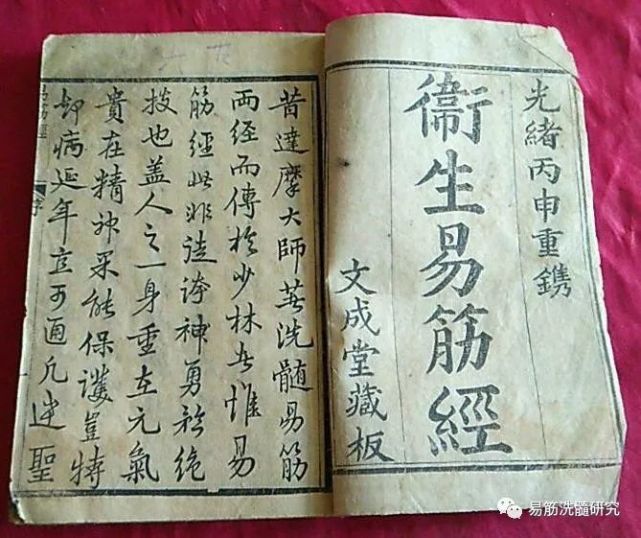 光緒丙申重鐫
衛生易筋經
文成堂藏板
昔達摩大師著洗髓易筋
两经而傳於少林者惟易
筋經此非徒誇神勇矜絶
技也盖人之一身重在元氣
貴在精神果能保護豈特
却病延年立可通凡聖
易筋經
序
易筋洗髓研究